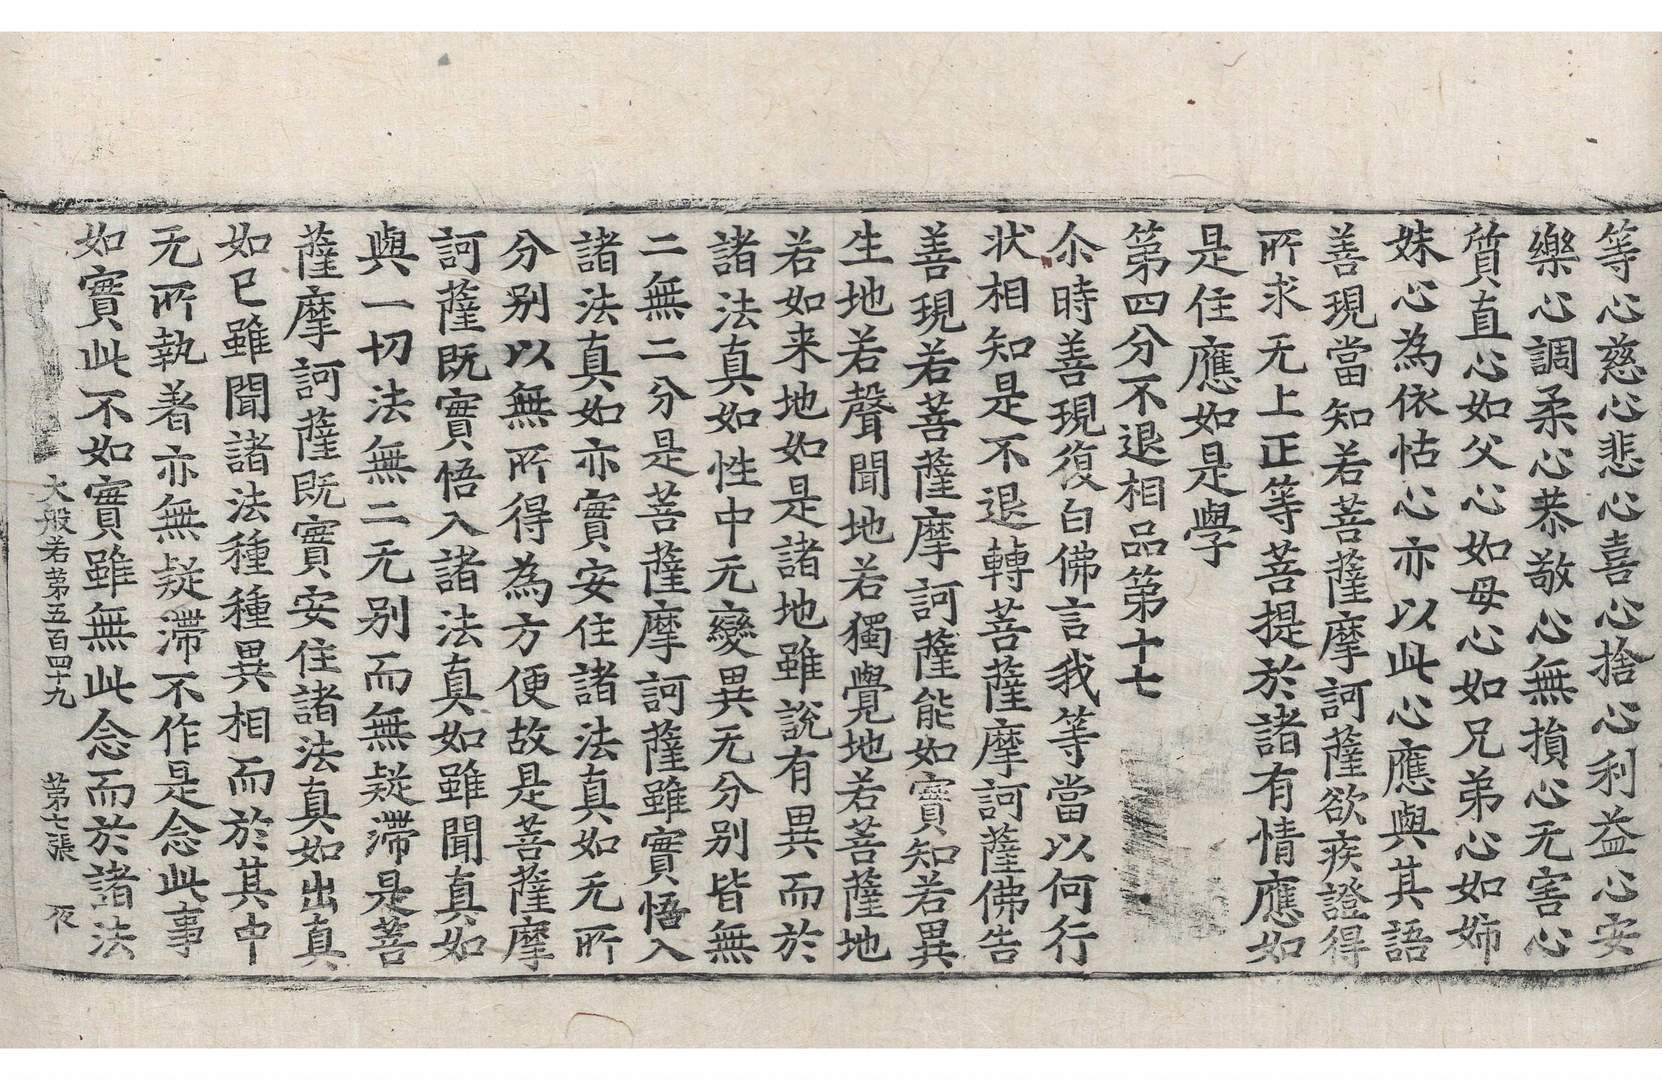 等心慈心悲心喜心捨心利益心安
樂心調柔心恭敬心無損心无害心
質直心如父心如母心如兄弟心如姉
妹心為依怙心亦以此心應與其語
善現當知若菩薩摩訶薩欲疾證得
所求无上正等菩提於諸有情應如
是住應如是學
第四分不退相品第十七
尒時善現復白佛言我等當以何行
狀相知是不退轉菩薩摩訶薩佛告
善現若菩薩摩訶薩能如實知若異
生地若聲聞地若獨覺地若菩薩地
若如来地如是諸地雖說有異而於
諸法真如性中无變異无分別皆無
二無二分是菩薩摩訶薩雖實悟入
諸法真如亦實安住諸法真如无所
分別以無所得為方便故是菩薩摩
訶薩既實悟入諸法真如雖聞真如
與一切法無二无別而無疑滯是菩
薩摩訶薩既實安住諸法真如出真
如已雖聞諸法種種異相而於其中
无所執著亦無疑滯不作是念此事
如實此不如實雖無此念而於諸法
大般若第五百四十九 第七張 夜